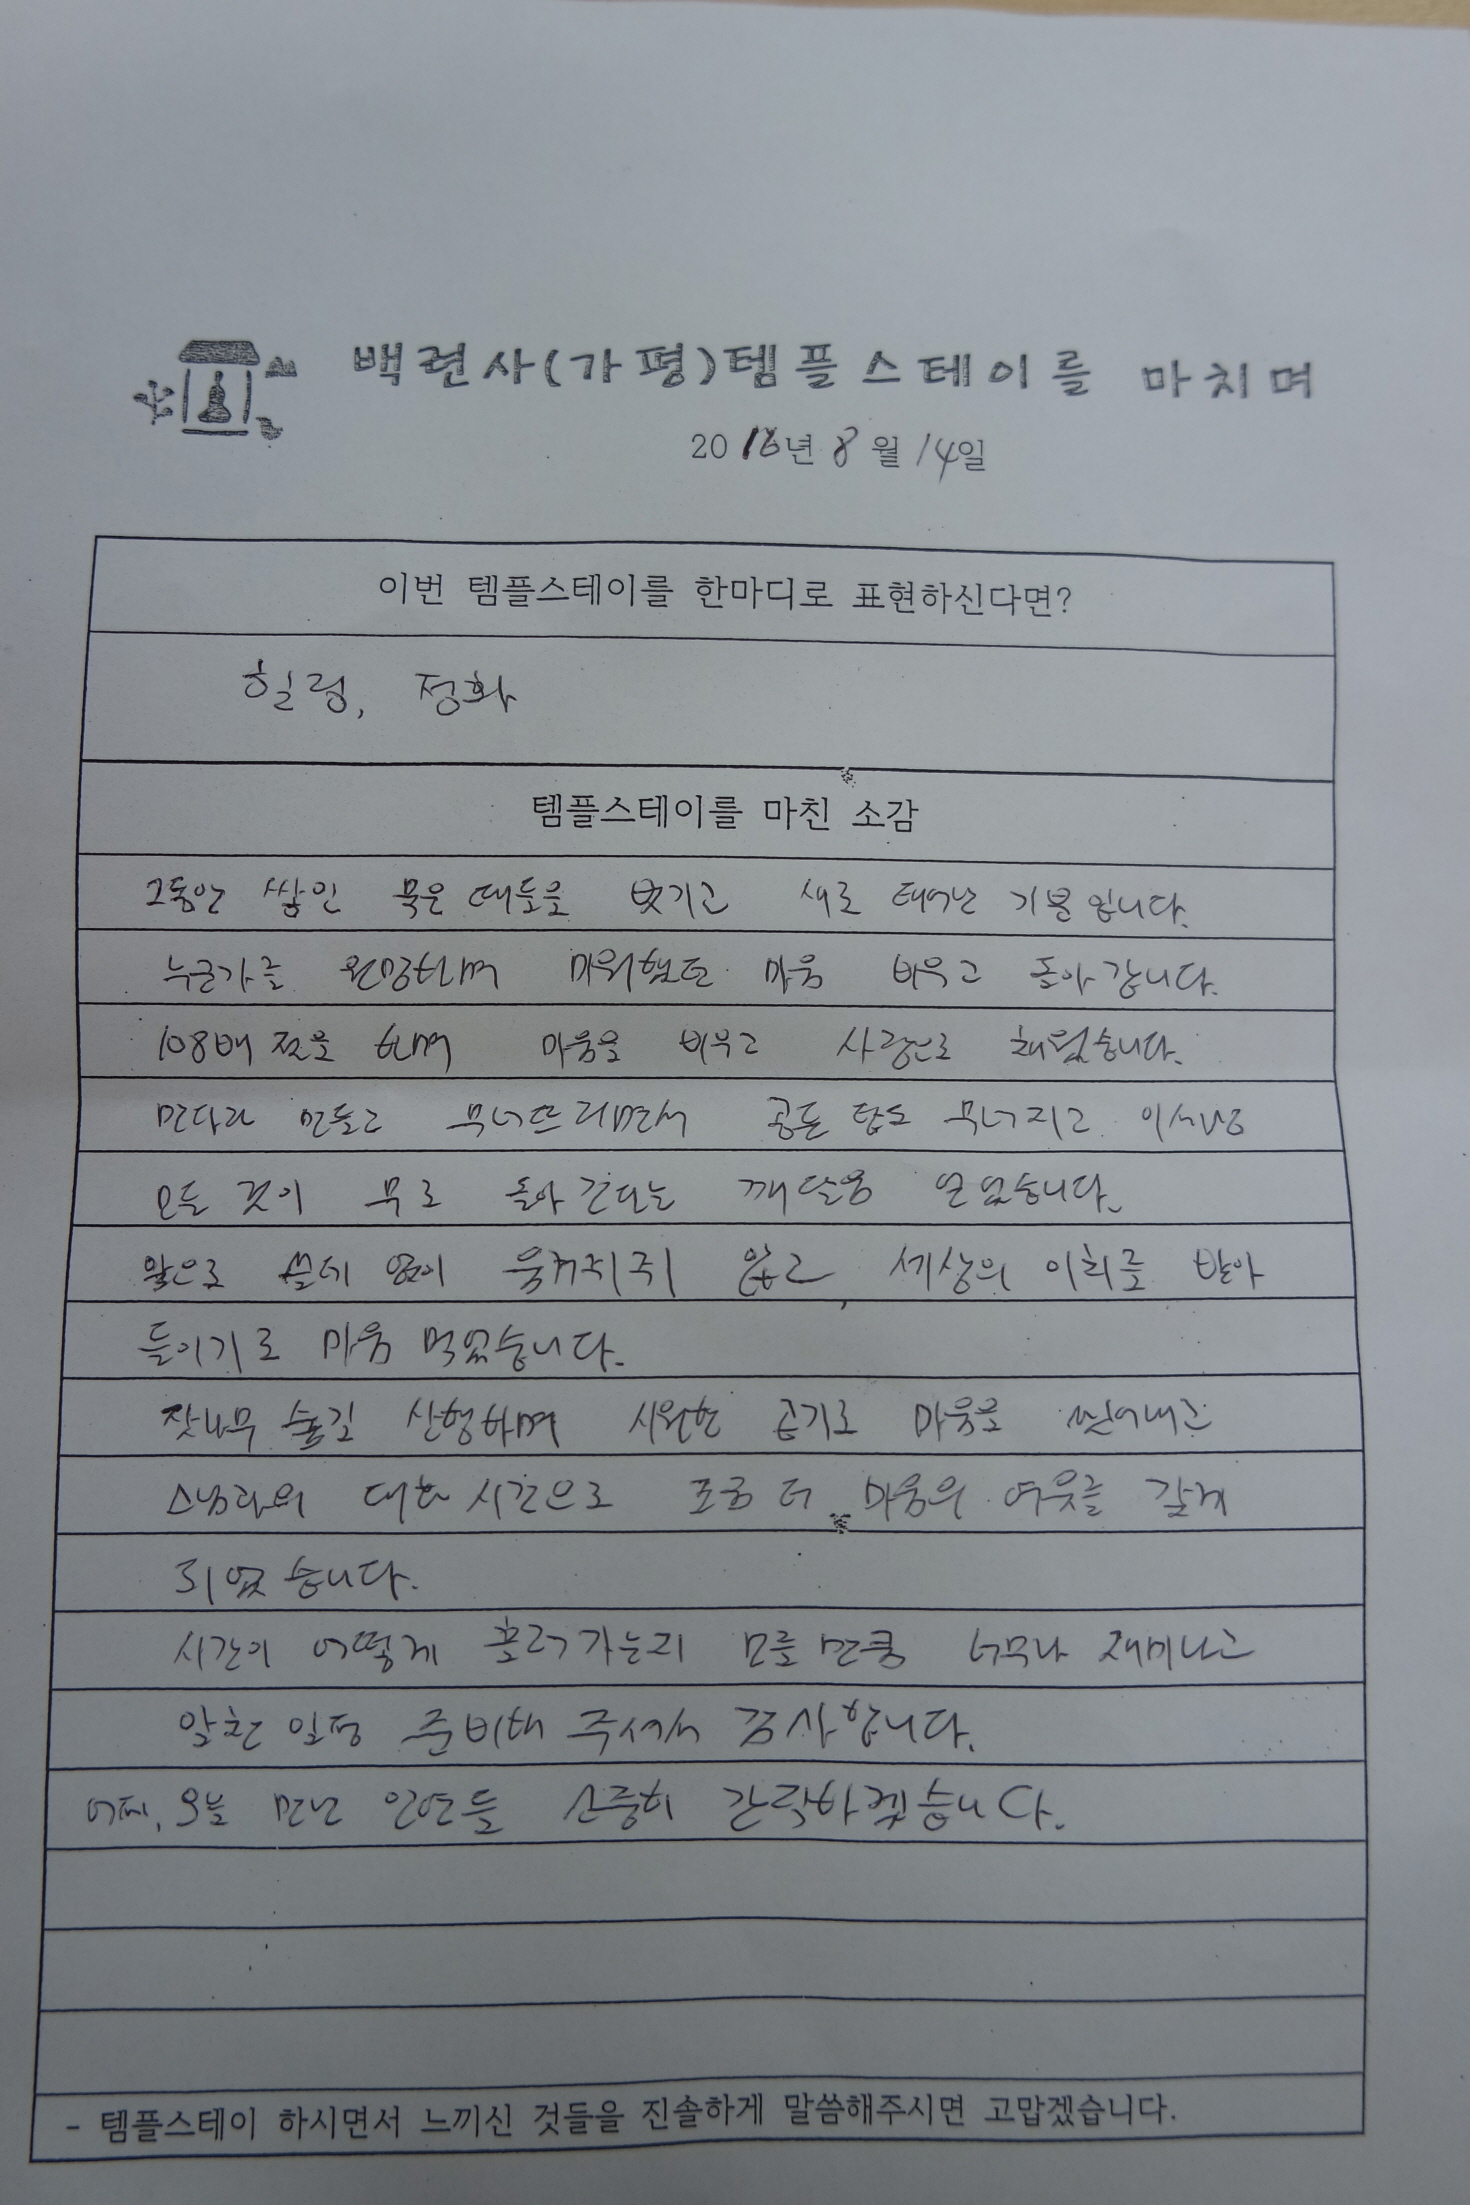 백련사(가평)템플스테이를 마치며
2016년 8월 14일
이번 템플스테이를 한마디로 표현하신다면?
힐링, 정화
템플스테이를 마친 소감
그동안 쌓인 묵은 때들을 벗기고 새로 태어난 기분입니다.
누군가를 원망하며 미워했던 마음 비우고 돌아갑니다.
108배 절을 하며 마음을 비우고 사랑으로 채웠습니다.
만다라 만들고 무너뜨리면서 공든 탑도 무너지고 이 세상
모든 것이 무로 돌아간다는 깨달음 얻었습니다.
앞으로 쓸데 없이 움켜쥐지 않고, 세상의 이치를 받아
들이기로 마음 먹었습니다.
잣나무 숲길 산행하며 시원한 공기로 마음을 씻어내고
스님과의 대화 시간으로 조금 더 마음의 여유를 갖게
되었습니다.
시간이 어떻게 흘러가는지 모를 만큼 너무나 재미나고
알찬 일정 준비해 주셔서 감사합니다.
어제, 오늘 만난 인연들 소중히 간직하겠습니다.
- 템플스테이 하시면서 느끼신 것들을 진솔하게 말씀해주시면 고맙겠습니다.